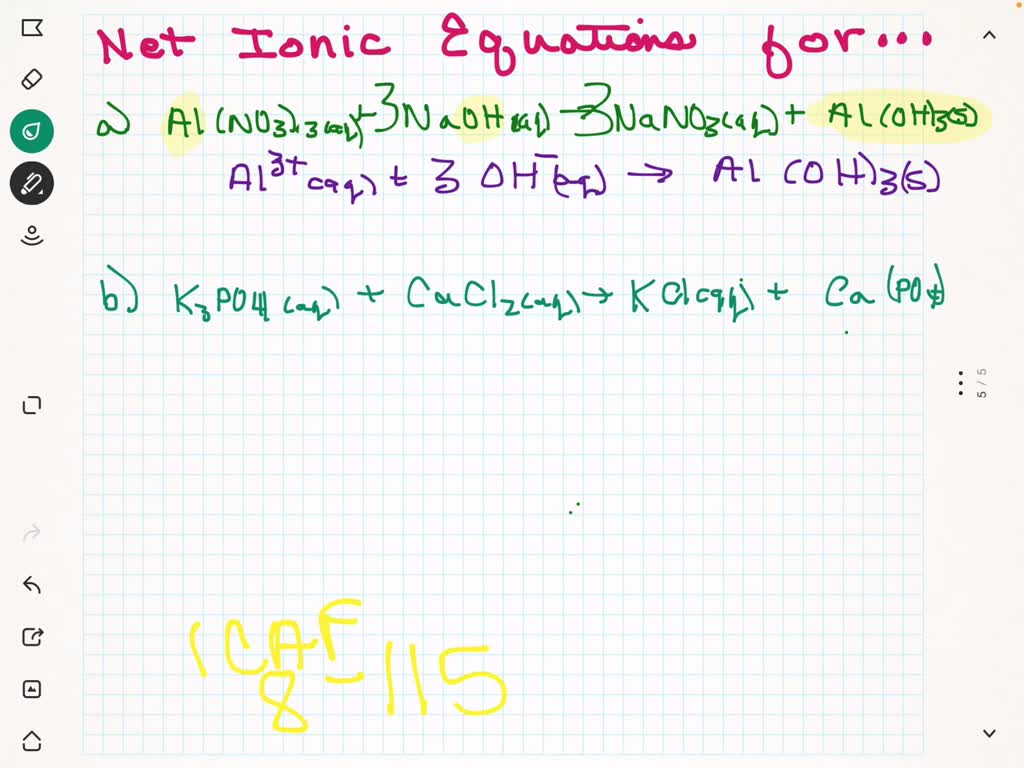 Net Ionic Equations for...
a) Al(NO3)3(aq) + 3NaOH(aq) → 3NaNO3(aq) + Al(OH)3(s)
Al3+(aq) + 3 OH-(aq) → Al(OH)3(s)
b) K3PO4(aq) + CaCl2(aq) → KCl(aq) + Ca(PO4)
5 / 5
ICAF
8-115